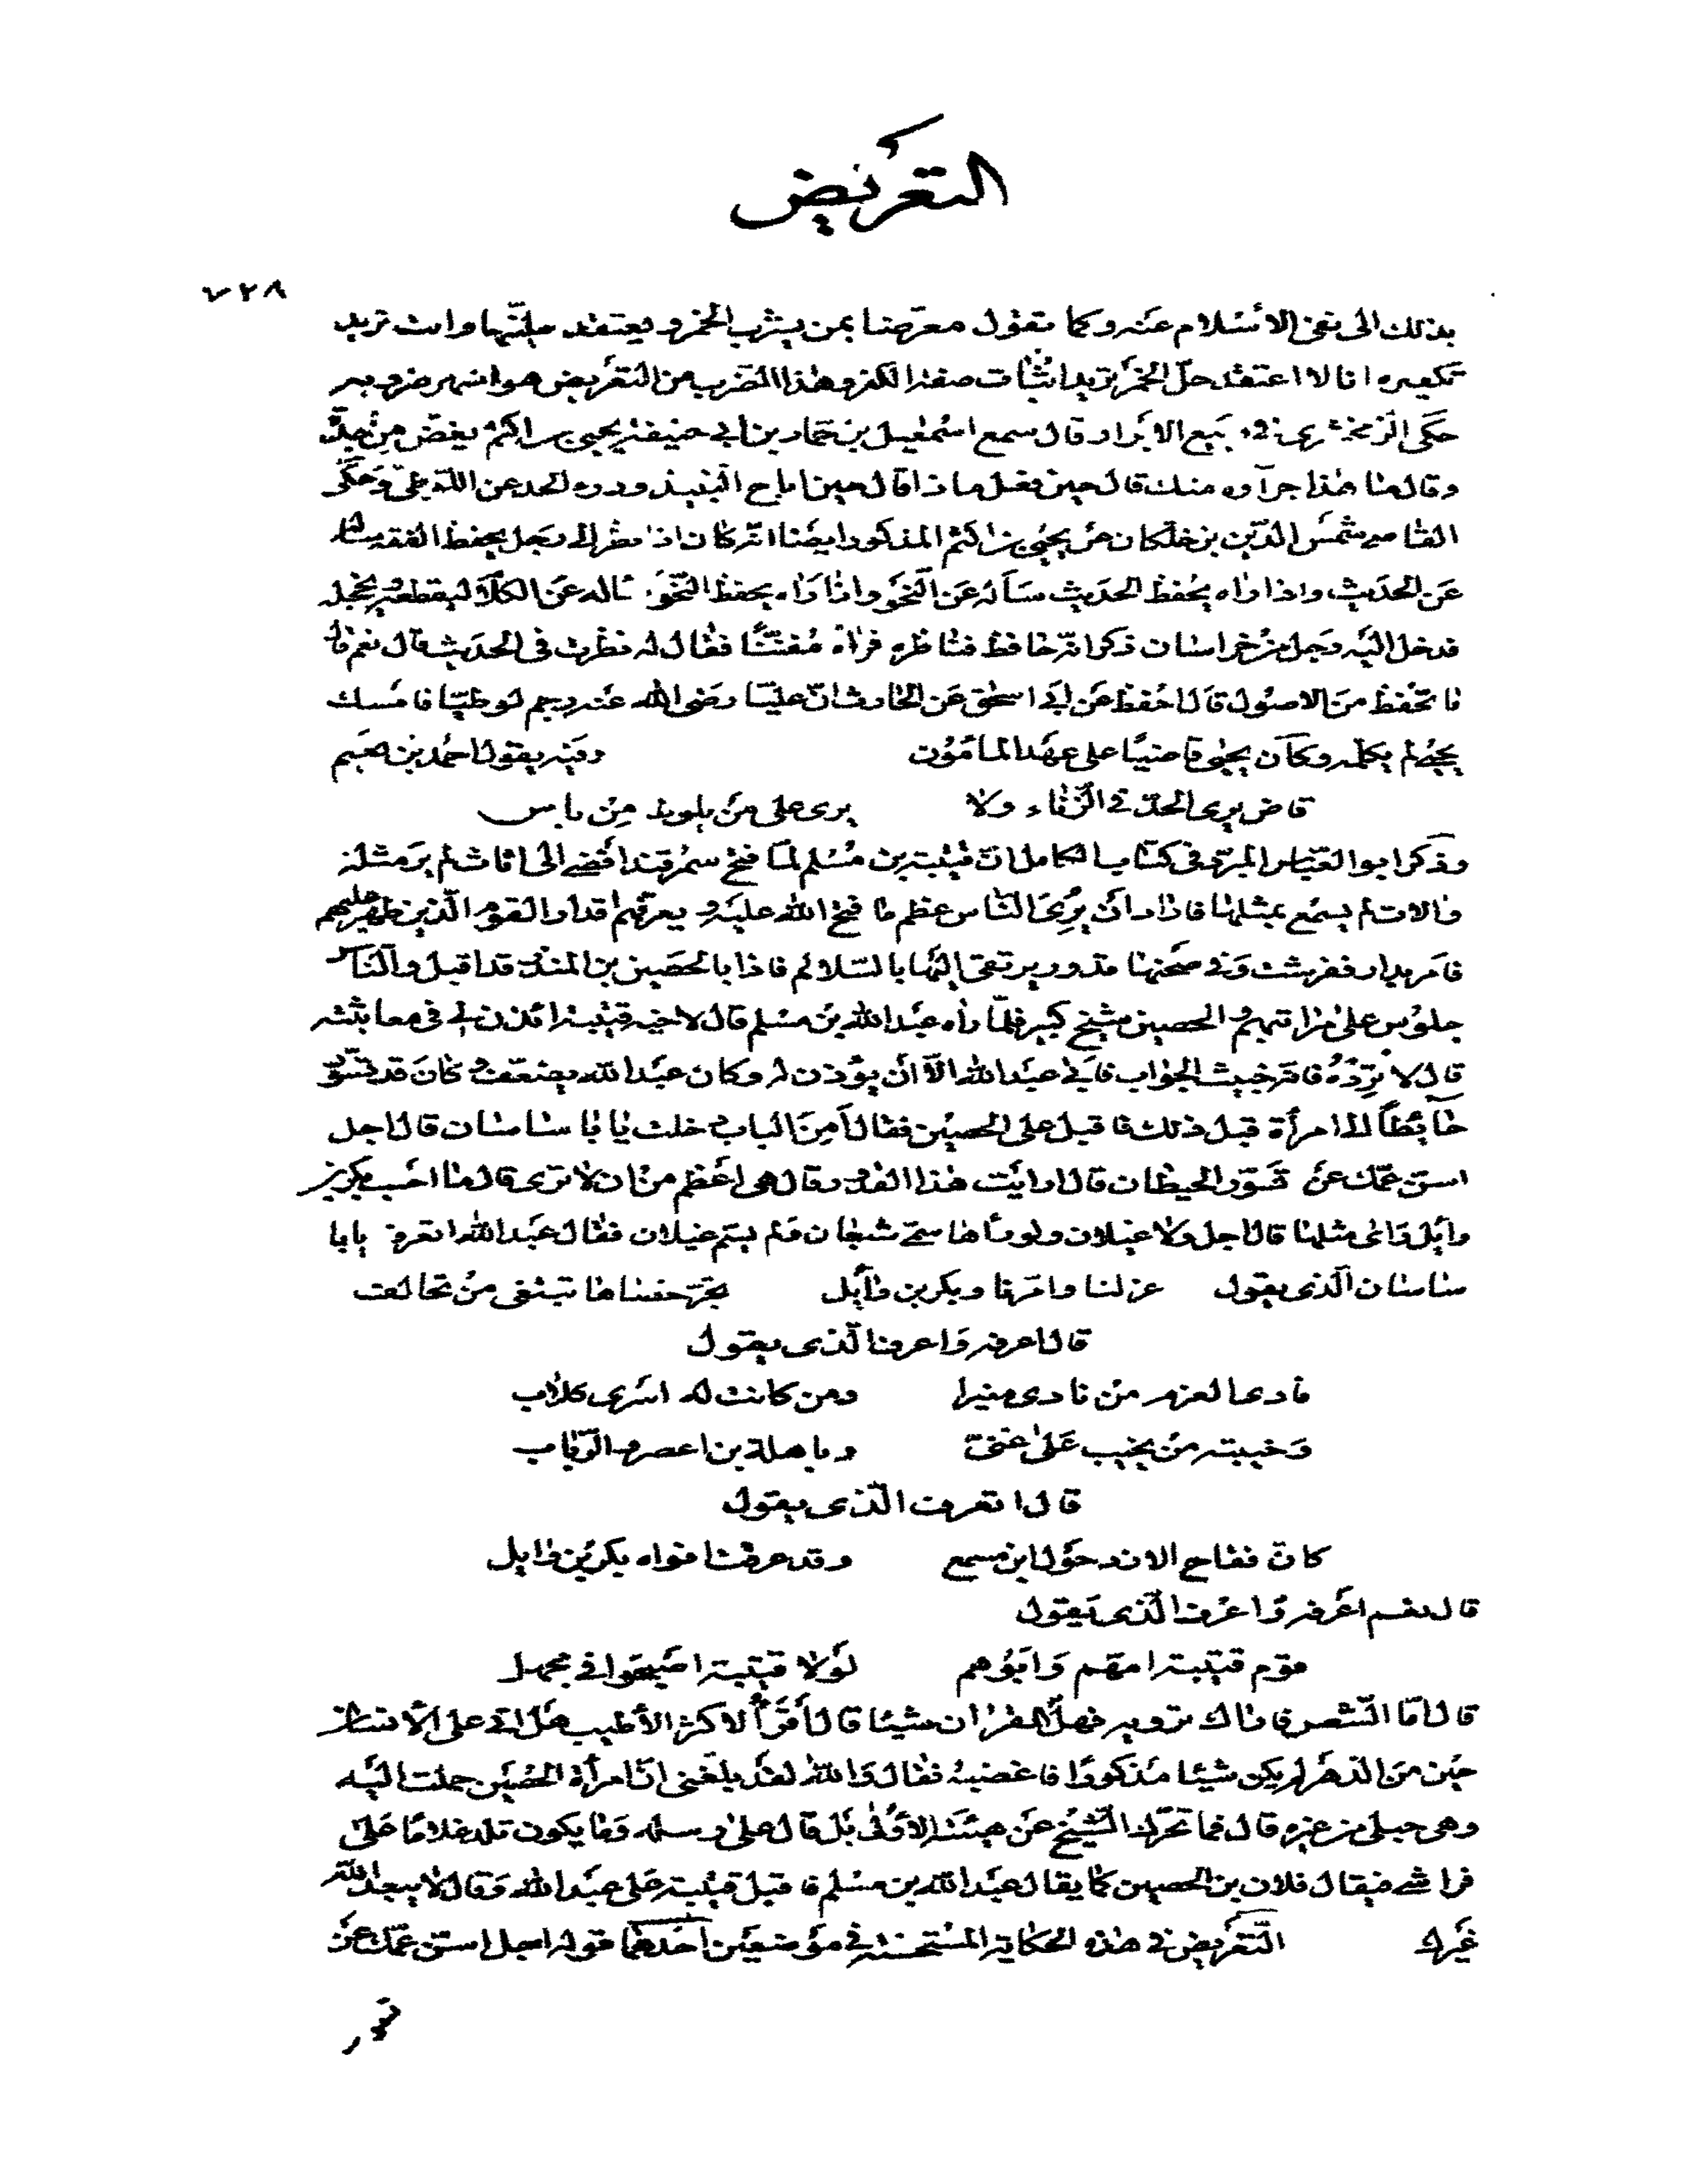 التعريض
٧٢٨
بذلك الى نفى الاسلام عنه وكما تقول معرّضا بمن يشرب الخمر ويعتقد حليّتها وانت تريد
تكفيره انا لا اعتقد حلّ الخمر تريد اثبات صفة الكفر وهذا الضرب من التعريض هو اشهر ضروبه
حكى الزمخشرى فى ربيع الابرار قال سمع اسمعيل بن حماد بن ابى حنيفة يحيى بن اكثم يغضّ من جدّه
وقال ما هذا جزاؤه منك قال حين فعل ماذا قال حين اباح النبيذ ودرء الحد عن اللوطى وحكى
القاضى شمس الدّين بن خلكان عن يحيى بن اكثم المذكور ايضا انّه كان اذا نظر الى رجل يحفظ الفقه سأله
عن الحديث واذا راه يحفظ الحديث سأله عن النحو واذا راه يحفظ النّحو سأله عن الكلام ليقطعه ويخجله
فدخل اليه رجل من خراسان ذكر انّه حافظ فناظره فراه مفننّا فقال له نظرت فى الحديث قال نعم قال
ما تحفظ من الاصول قال احفظ عن ابى اسحق عن الحارث انّ عليّا رضى الله عنه رجم لوطيّا فامسك
يحيى لم يكلمه وكان يحيى قاضيا على عهد المامون وفيه يقول احمد بن نعيم
قاض يرى الحدّ فى الزّناء ولا يرى على من يلوط من باس
وذكر ابو العبّاس المبرّد فى كتاب الكامل انّ قتيبة بن مسلم لمّا فتح سمرقند افضى الى اثاث لم ير مثله
والات لم يسمع بمثلها فاراد ان يرى النّاس عظم ما فتح الله عليه ويعرفهم اقدار القوم الّذين ظهر عليهم
فامر بدار ففرشت وفى صحنها قدور يرتقى اليها بالسّلالم فاذا بالحصين بن المنذر قد اقبل والنّاس
جلوس على مراتبهم والحصين شيخ كبير فلمّا راه عبد الله بن مسلم قال لاخيه قتيبة ائذن لى فى معاتبته
قال لا تردّه فانّه خبيث الجواب فابى عبد الله الاّ ان يؤذن له وكان عبد الله يضعّف وكان قد تسوّر
حائطاً الى امرأة قبل ذلك فاقبل على الحصين فقال أمن الباب دخلت يا با ساسان قال اجل
اسنّ عمّك عن تسوّر الحيطان قال ارايت هذا القدور قال هى اعظم من ان لا ترى قال ما احسب بكر بن
وايل راى مثلها قال اجل ولا عيلان ولو راها سمّى شبعان ولم يسم عيلان فقال عبد الله اتعرف يا با
ساسان الّذى يقول عزلنا وامّرنا وبكر بن وايل يجرّ خصاها تبتغى من تحالف
قال اعرفه واعرف الّذى يقول
فادى العزم من نادى مشيرا ومن كانت له اسرى كلاب
وخيبته من يخيب على غنىّ وباهلة بن اعصر والرّباب
قال اتعرف الّذى يقول
كانّ فقاح الازد حول ابن مسمع وقد عرقت افواه بكر بن وايل
قال نعم اعرفه واعرف الّذى يقول
قوم قتيبة امّهم وابوهم لولا قتيبة اصبحوا فى مجهل
قال امّا الشّعر فاراك ترويه فهل تقرأ القرآن شيئا قال أقرأ الاكثر الأطيب هل اتى على الأنسان
حين من الدّهر لم يكن شيئا مذكورا فاغضبه فقال والله لقد بلغنى انّ امرأة الحصين حملت اليه
وهى حبلى من غيره قال فما تحرّك الشّيخ عن هيئته الاولى بل قال على رسله وما يكون تلد غلاما على
فراشى فيقال فلان بن الحصين كما يقال عبد الله بن مسلم فاقبل قتيبة على عبد الله وقال لا يبعد الله
غيرك التّعريض فى هذه الحكاية المستحسنة فى موضعين احدهما قوله اجل اسنّ عمّك عن
تسور